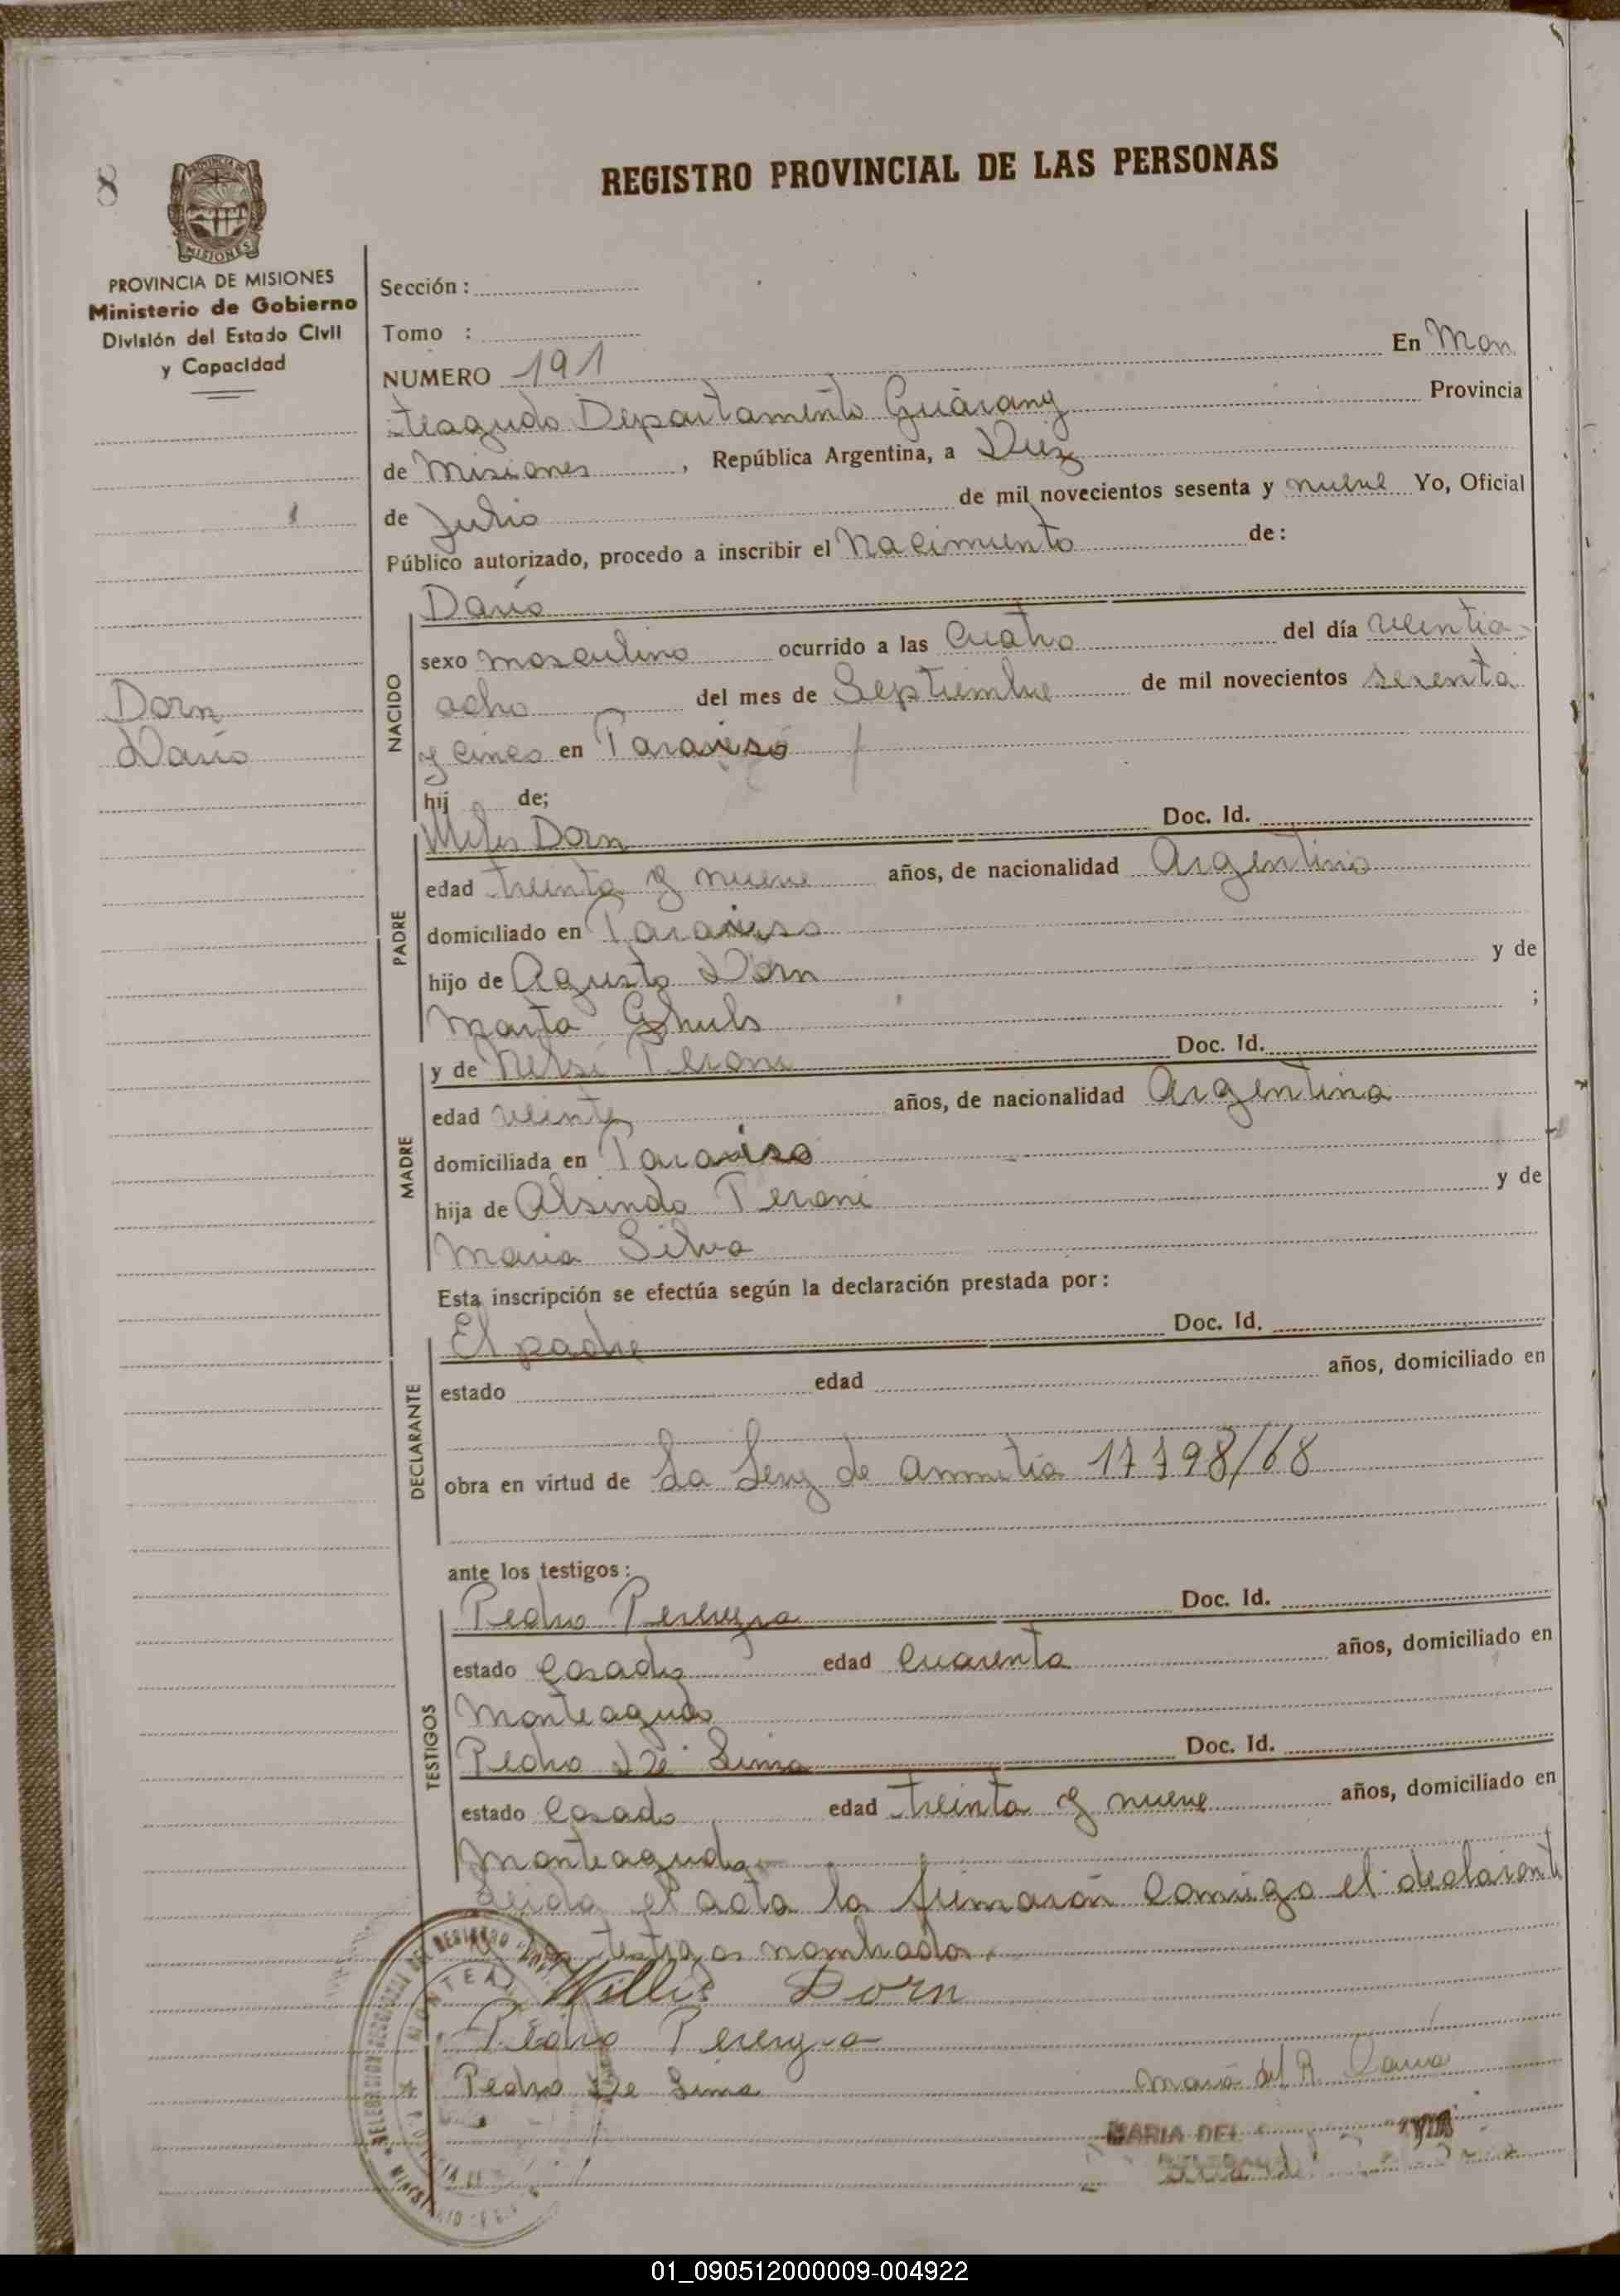 8
REGISTRO PROVINCIAL DE LAS PERSONAS
PROVINCIA DE MISIONES
Ministerio de Gobierno
División del Estado Civil
y Capacidad
Sección:
Tomo :
NUMERO 191 En Mon
teagudo Departamento Guarany Provincia
de Misiones, República Argentina, a Diez
de Julio de mil novecientos sesenta y nueve Yo, Oficial
Público autorizado, procedo a inscribir el Nacimiento de:
Dorn
Darío
NACIDO
Darío
sexo masculino ocurrido a las cuatro del día veintia
ocho del mes de Septiembre de mil novecientos sesenta
y cinco en Paraiso
hij o de;
PADRE
Dorn Doc. Id.
edad treinta y nueve años, de nacionalidad Argentino
domiciliado en Paraiso
hijo de Agusto Dorn y de
Marta ;
MADRE
y de Nelsi Peroni Doc. Id.
edad veinte años, de nacionalidad Argentina
domiciliada en Paraiso
hija de Alsindo Peroni y de
Maria Silva
Esta inscripción se efectúa según la declaración prestada por:
DECLARANTE
El padre Doc. Id.
estado edad años, domiciliado en
obra en virtud de La Ley de amnistia 17798/68
ante los testigos:
TESTIGOS
Pedro Pereyra Doc. Id.
estado Casado edad cuarenta años, domiciliado en
Monteagudo
Pedro De Lima Doc. Id.
estado Casado edad treinta y nueve años, domiciliado en
Monteagudo
Leida el acta la firmaron Comigo el declarante
testigos nombrados.
Willis Dorn
Pedro Pereyra
Pedro De Lima
Maria del R.
MARIA DEL
01_090512000009-004922